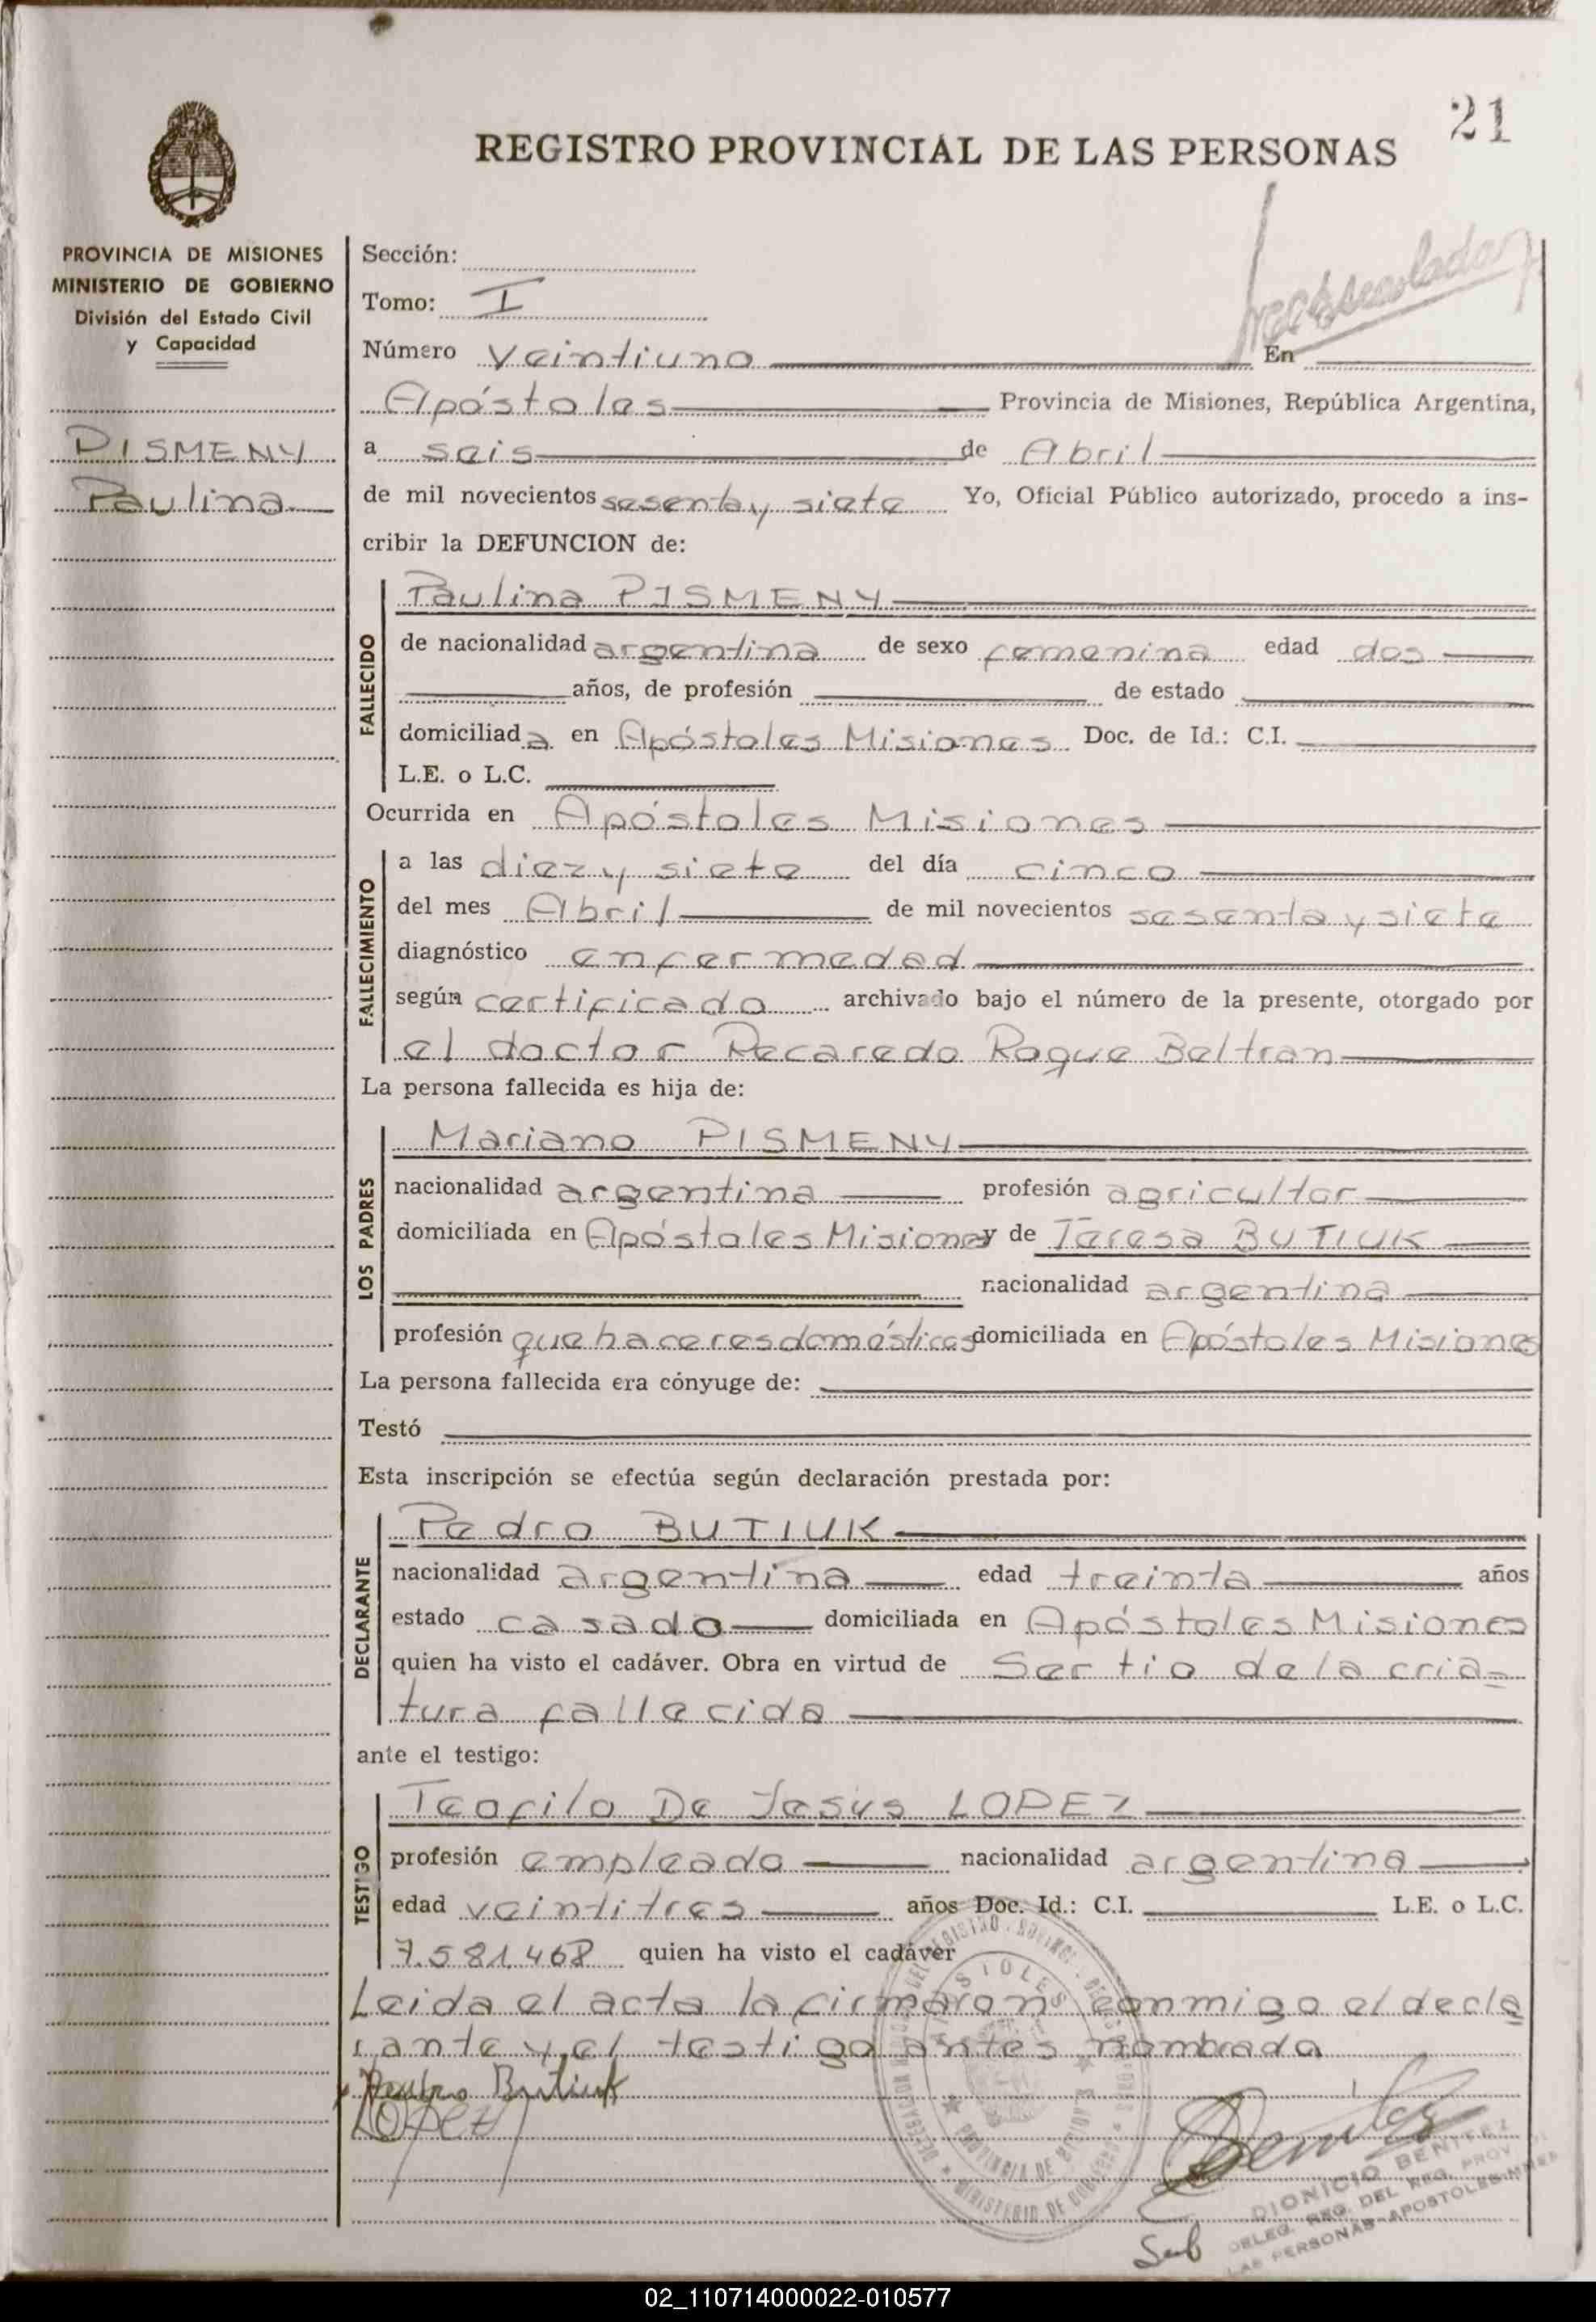 21
REGISTRO PROVINCIAL DE LAS PERSONAS
PROVINCIA DE MISIONES
MINISTERIO DE GOBIERNO
División del Estado Civil
y Capacidad
PISMENY
Paulina
Sección:
Tomo: I
Número veintiuno En
Apóstoles Provincia de Misiones, República Argentina,
a seis de Abril
de mil novecientos sesenta y siete Yo, Oficial Público autorizado, procedo a ins-
cribir la DEFUNCION de:
FALLECIDO
Paulina PISMENY
de nacionalidad argentina de sexo femenina edad dos
años, de profesión de estado
domiciliada en Apóstoles Misiones Doc. de Id.: C.I.
L.E. o L.C.
Ocurrida en Apóstoles Misiones
FALLECIMIENTO
a las diez y siete del día cinco
del mes Abril de mil novecientos sesenta y siete
diagnóstico enfermedad
según certificado archivado bajo el número de la presente, otorgado por
el doctor Recaredo Roque Beltran
La persona fallecida es hija de:
LOS PADRES
Mariano PISMENY
nacionalidad argentina profesión agricultor
domiciliada en Apóstoles Misiones y de Teresa BUTIUK
nacionalidad argentina
profesión quehaceres domésticos domiciliada en Apóstoles Misiones
La persona fallecida era cónyuge de:
Testó
Esta inscripción se efectúa según declaración prestada por:
DECLARANTE
Pedro BUTIUK
nacionalidad argentina edad treinta años
estado casado domiciliada en Apóstoles Misiones
quien ha visto el cadáver. Obra en virtud de Ser tio de la cria-
tura fallecida
ante el testigo:
TESTIGO
Teofilo De Jesús LOPEZ
profesión empleado nacionalidad argentina
edad veintitres años Doc. Id.: C.I. L.E. o L.C.
7.581.468 quien ha visto el cadáver
Leida el acta la firmaron conmigo el decla
rante y el testigo antes nombrado
Pedro Butiuk
LOPEZ
Benitez
DIONICIO BENITEZ
DELEG. REG. DEL REG. PROV
LAS PERSONAS-APOSTOLES-MNES
Sub
PROVINCIA DE MISIONES
MINISTERIO DE GOBIERNO
02_110714000022-010577